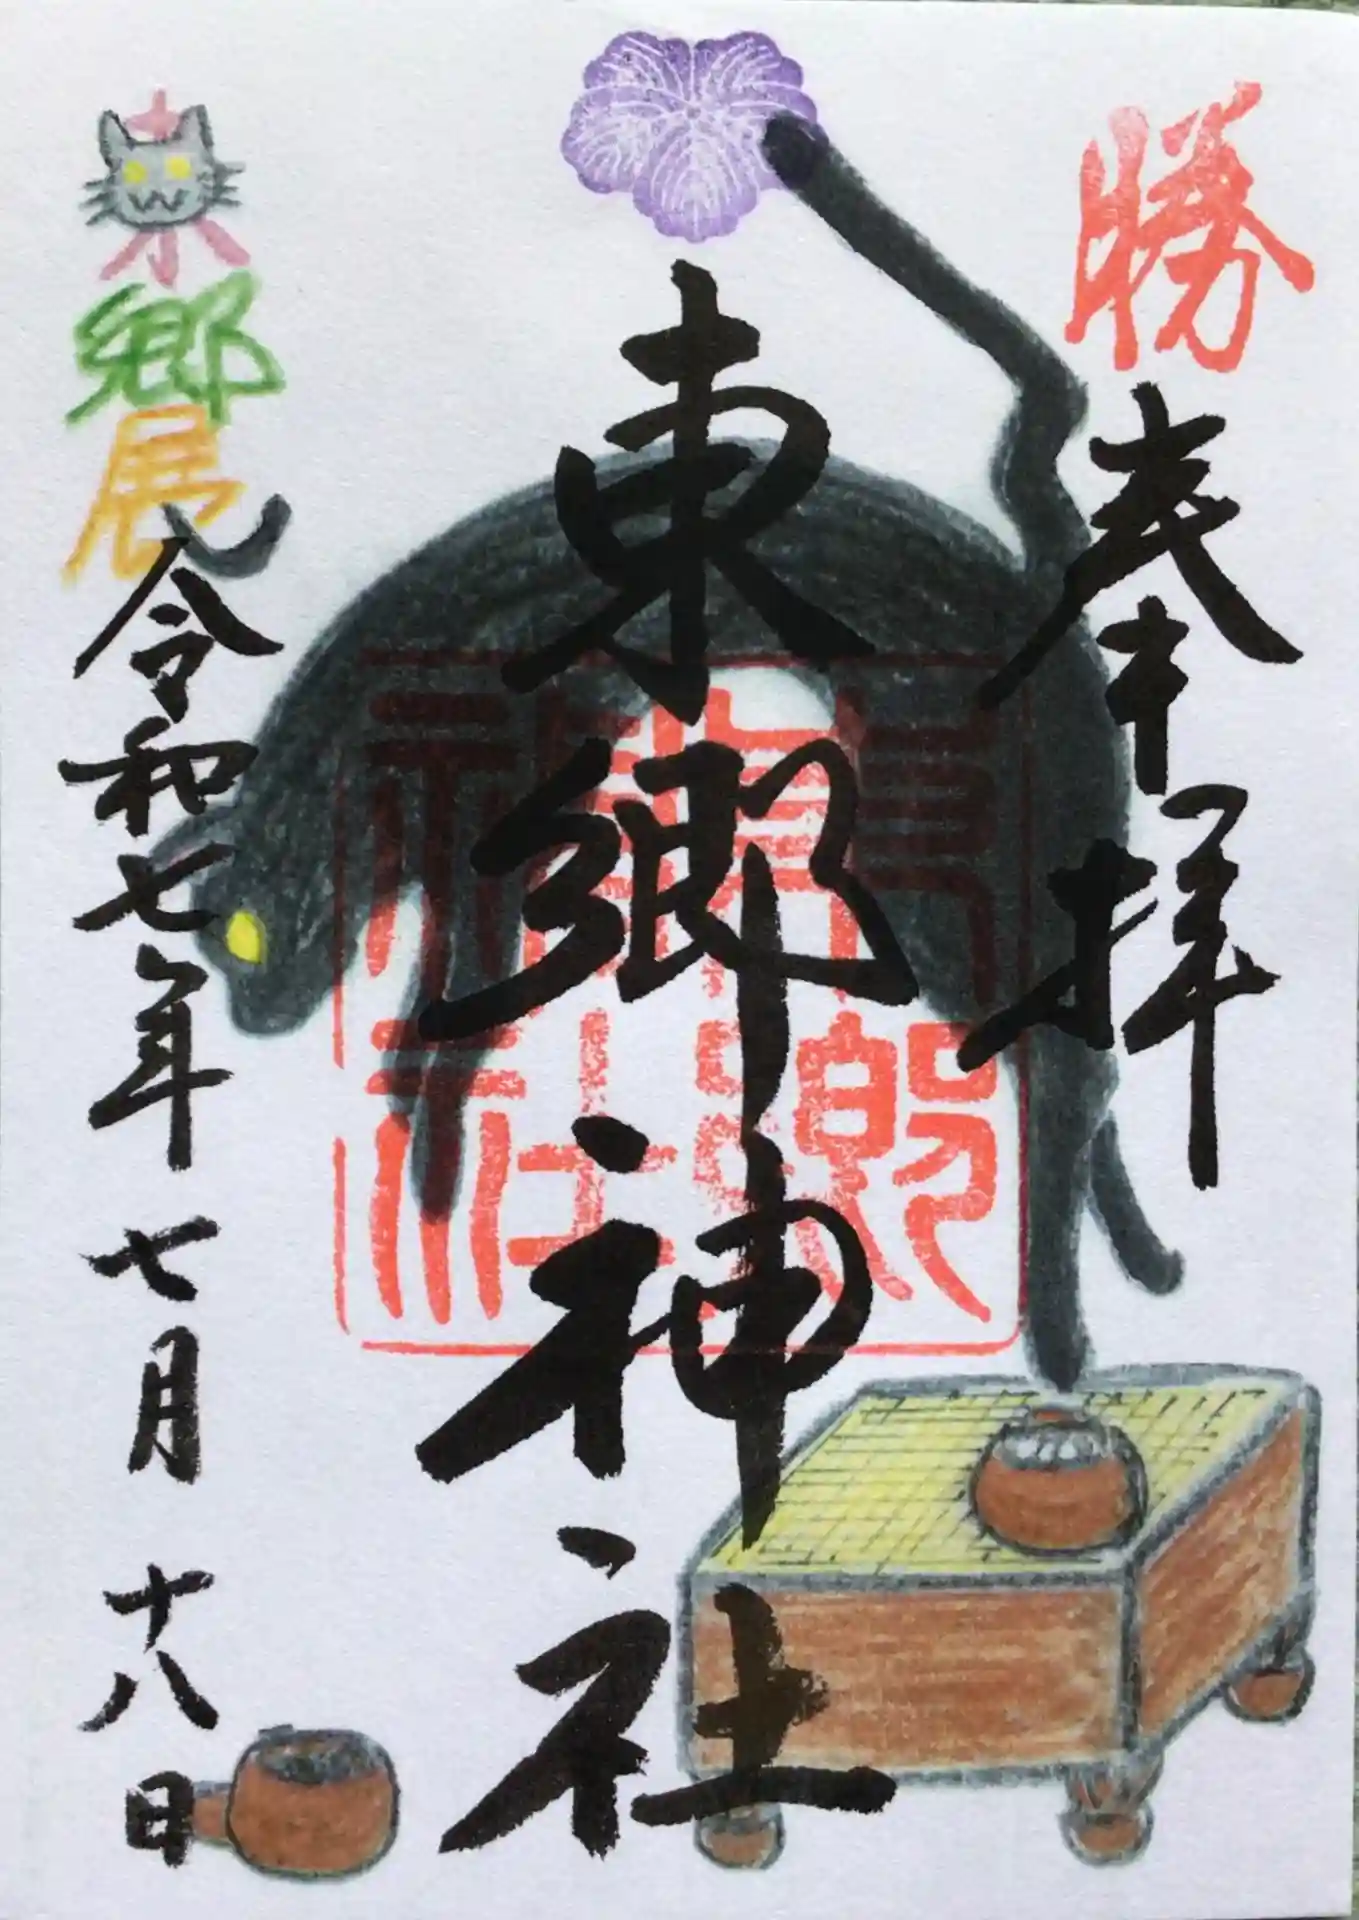 勝
奉拝
東郷神社
東郷神社
東郷展
令和七年七月十八日